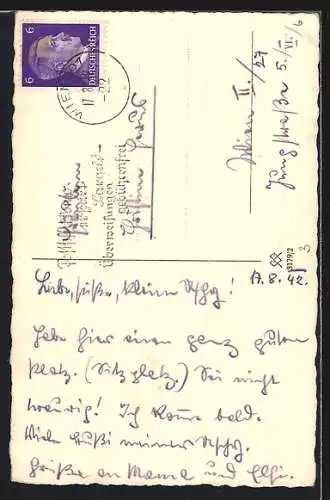 6 6
DEUTSCHES REICH
WIEN
17.8.
-22
Postsparkasse
Bargeld-
Überweisungen
gebührenfrei
Wien II./27
Jungstraße 5./
VI./6
3179/2
3
17.8.42.
Liebe, süße, kleine
Habe hier einen ganz guten
Platz. (Sitzplatz.) Sei nicht
traurig! Ich komme bald.
Viele Bussi meiner
Grüße an Mama und